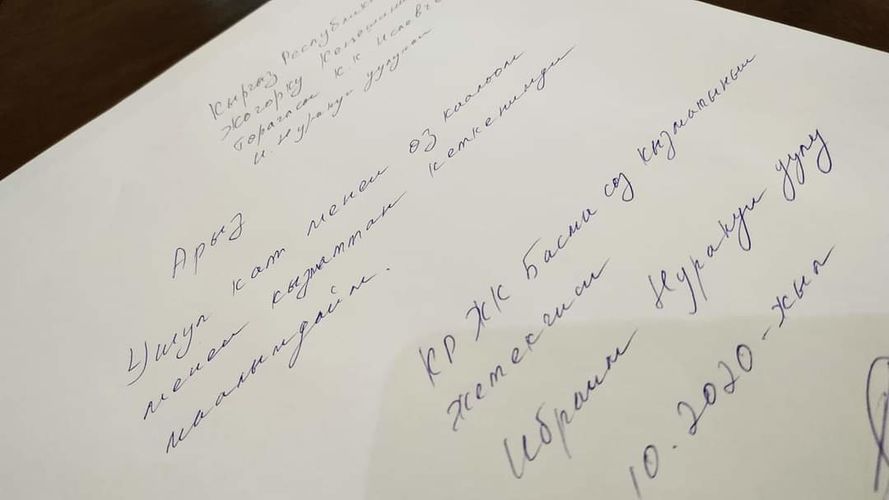 Кыргыз Республика
Жогорку Кеңешинин
төрагасы К.К Исаевге
И. Нуракун уулунан
Арыз
Ушул кат менен өз каалоом
менен кызматтан кеткенимди
маалымдайм.
КР ЖК Басма сөз кызматынын
жетекчиси
Ибраим Нуракун уулу
10.2020-жыл